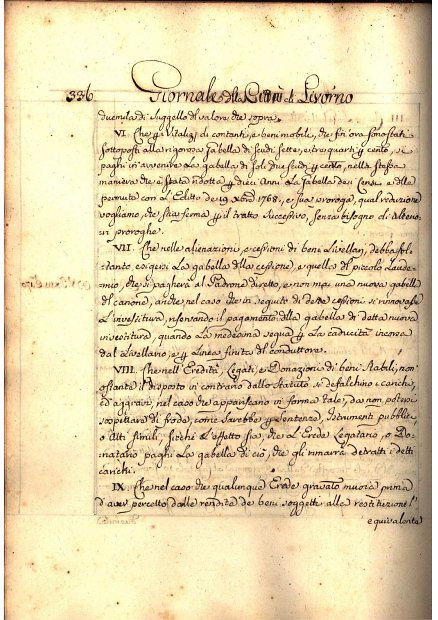 336 Giornale della Città di Livorno
ducmila di Suggello di valore, che sopra.
VI. Che p Vitalizj di contanti, e beni mobili, che fin ora sono stati
sottoposti alla rigorosa Gabella di scudi sette, e tre quarti p cento, si
paghi in avvenire La gabella di soli due scudi p cento, nella stessa
maniera che è stata ridotta p dieci Anni La Gabella dei Censi e delle
permute con L'Editto de 19 Xbre 1768, e sua proroga, qual riduzione
vogliamo, che sia ferma p il tratto successivo, senza bisogno di ulteriori
proroghe.
VII. Che nelle alienazioni, e cessioni di beni Livellari, debba sol-
tanto esigersi La gabella della cessione, e quella del piccolo Laude-
mio, che si pagherà al Padrone diretto, e non mai una nuova gabella
del canone, anche nel caso che in seguito di dette cessioni si rinnovasse
L'investitura, riservando il pagamento della gabella di detta nuova
investitura, quando La medesima segua p La caducità incorsa
dal Livellario, e p Linea finita del conduttore.
VIII. Che nell'Eredità, Legati, e Donazioni di beni Stabili, non
ostante il disposto in contrario dallo Statuto si defalchino i carichi,
ed aggravi, nel caso che appariscano in forma tale, da non potersi
sospettare di frode, come sarebbe p Sentenze, Istrumenti pubblici,
o Atti simili, sicchè L'effetto sia, che L'Erede Legatario, o Do-
natario paghi La gabella di ciò, che gli rimarrà detratti i detti
carichi.
IX. Che nel caso che qualunque Erede gravato muoia prima
d'aver percetto dalle rendite de beni soggetti alla restituzione L'
equivalente